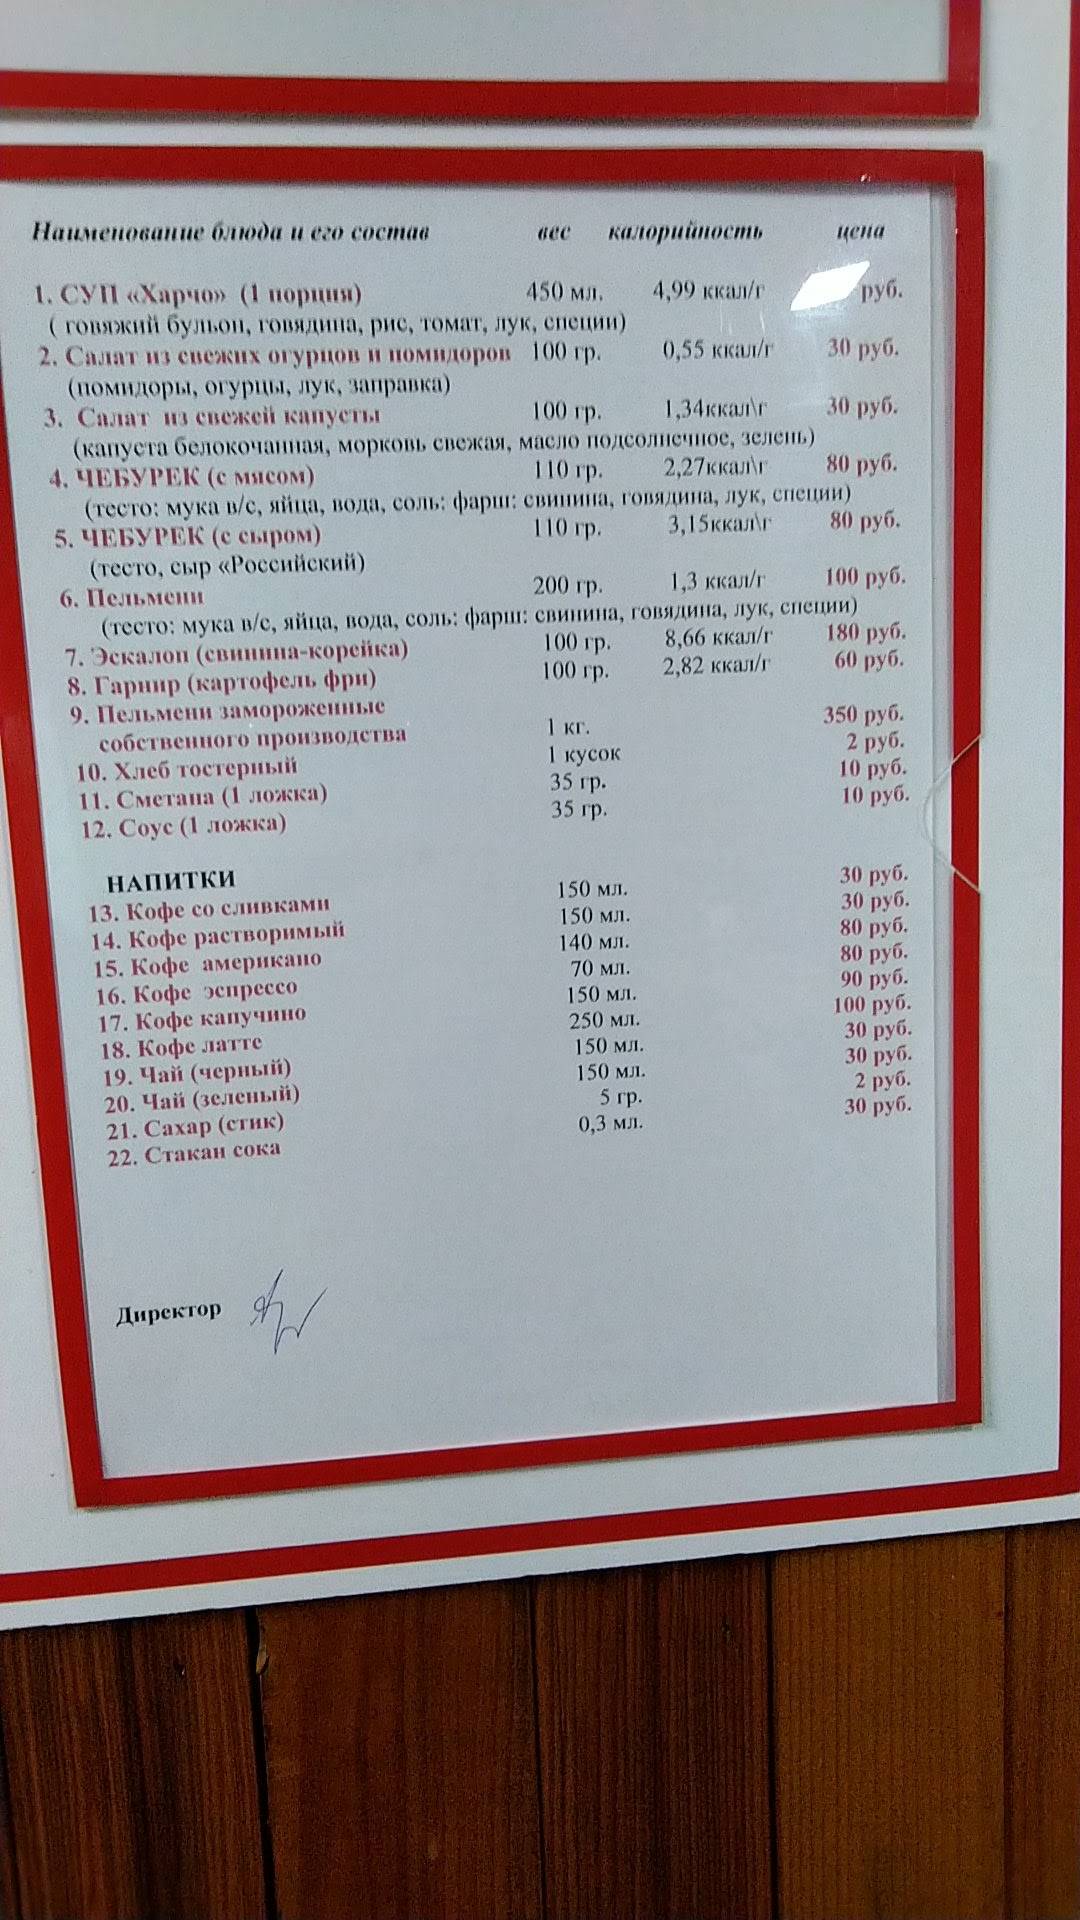 Наименование блюда и его состав вес калорийность цена
1. СУП «Харчо» (1 порция) 450 мл. 4,99 ккал/г руб.
( говяжий бульон, говядина, рис, томат, лук, специи)
2. Салат из свежих огурцов и помидоров 100 гр. 0,55 ккал/г 30 руб.
(помидоры, огурцы, лук, заправка)
3. Салат из свежей капусты 100 гр. 1,34ккал\г 30 руб.
(капуста белокочанная, морковь свежая, масло подсолнечное, зелень)
4. ЧЕБУРЕК (с мясом) 110 гр. 2,27ккал\г 80 руб.
(тесто: мука в/с, яйца, вода, соль: фарш: свинина, говядина, лук, специи)
5. ЧЕБУРЕК (с сыром) 110 гр. 3,15ккал\г 80 руб.
(тесто, сыр «Российский)
6. Пельмени 200 гр. 1,3 ккал/г 100 руб.
(тесто: мука в/с, яйца, вода, соль: фарш: свинина, говядина, лук, специи)
7. Эскалоп (свинина-корейка) 100 гр. 8,66 ккал/г 180 руб.
8. Гарнир (картофель фри) 100 гр. 2,82 ккал/г 60 руб.
9. Пельмени замороженные
собственного производства 1 кг. 350 руб.
10. Хлеб тостерный 1 кусок 2 руб.
11. Сметана (1 ложка) 35 гр. 10 руб.
12. Соус (1 ложка) 35 гр. 10 руб.
НАПИТКИ
13. Кофе со сливками 150 мл. 30 руб.
14. Кофе растворимый 150 мл. 30 руб.
15. Кофе американо 140 мл. 80 руб.
16. Кофе эспрессо 70 мл. 80 руб.
17. Кофе капучино 150 мл. 90 руб.
18. Кофе латте 250 мл. 100 руб.
19. Чай (черный) 150 мл. 30 руб.
20. Чай (зеленый) 150 мл. 30 руб.
21. Сахар (стик) 5 гр. 2 руб.
22. Стакан сока 0,3 мл. 30 руб.
Директор